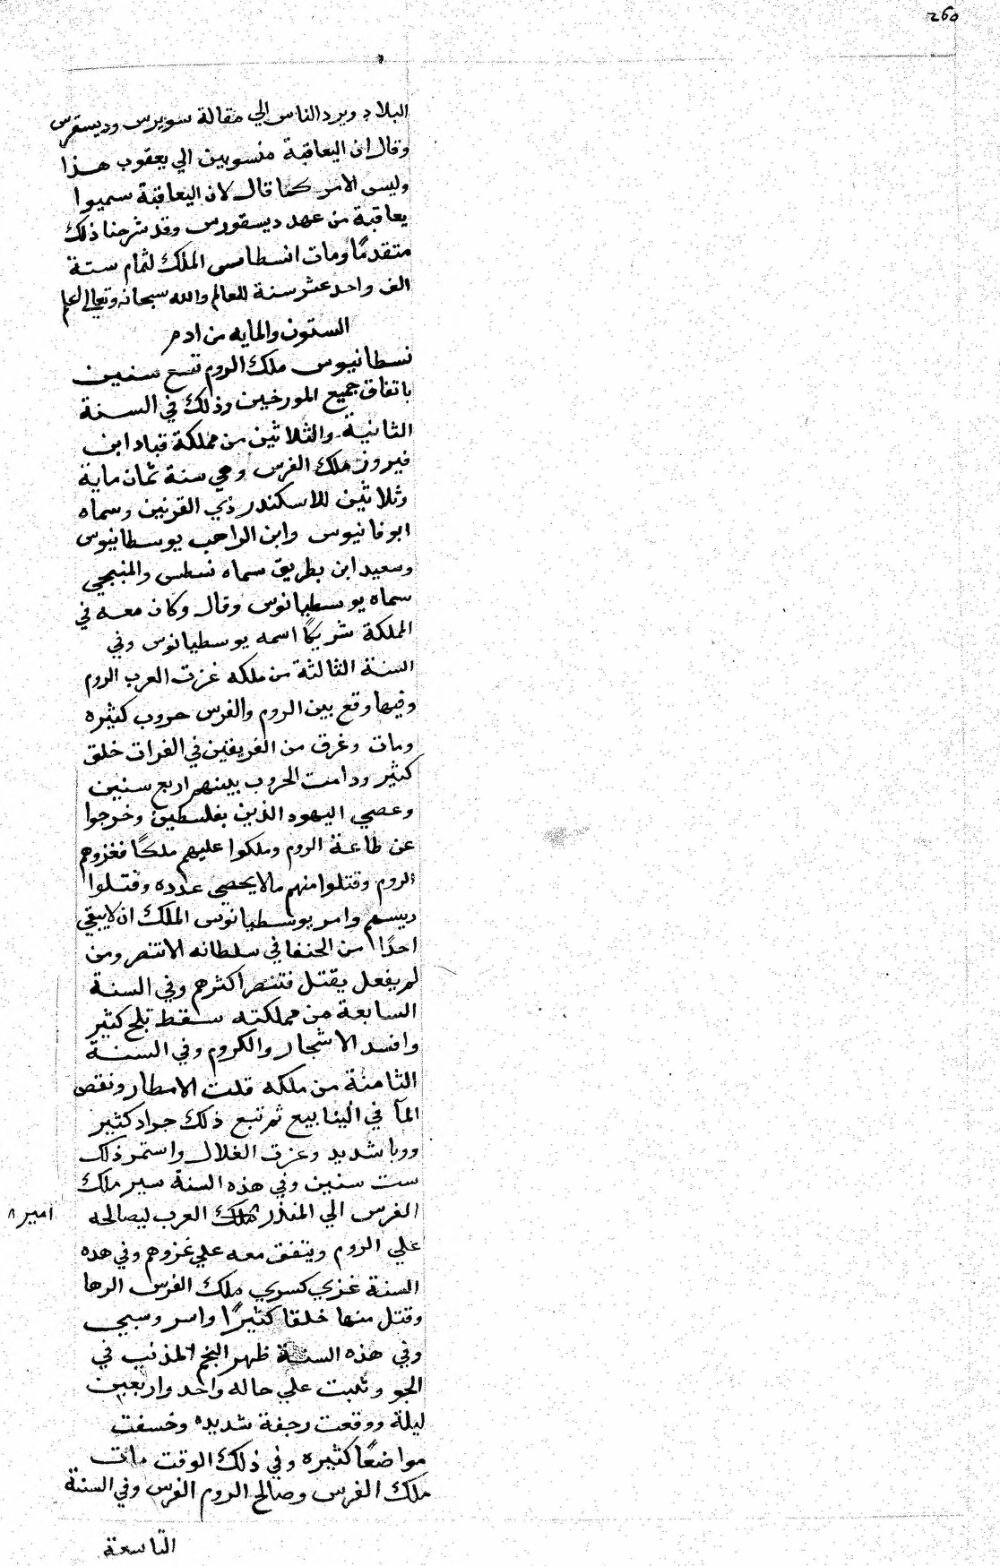 260
البلاد ويرد الناس الي مقالة سويرس وديسقرس
وقال ان اليعاقبة منسوبين الي يعقوب هذا
وليس الامر كما قال لان اليعاقبة سميوا
يعاقبة من عهد ديسقورس وقد شرحنا ذلك
متقدمًا ومات انسطاسس الملك لثمام ستة
الف واحد عشر سنة للعالم والله سبحانه وتعالي اعلم
الستون والمايه من ادم
نسطانيوس ملك الروم تسع سنين
باتفاق جميع المورخين وذلك في السنة
الثانية والثلاثين من مملكة قباد ابن
فيروز ملك الفرس وهي سنة ثمان ماية
وثلاثين للاسكندر ذي القرنين وسماه
ابوفانيوس وابن الراهب يوسطاينوس
وسعيد ابن بطريق سماه نسطس والمنبجي
سماه يوسطيانوس وقال وكان معه في
المملكة شريكًا اسمه يوسطيانوس وفي
السنة الثالثة من ملكه غزت العرب الروم
وفيها وقع بين الروم والفرس حروب كثيره
ومات وغرق من الفريقين في الفرات خلق
كثير ودامت الحروب بينهم اربع سنين
وعصي اليهود الذين بفلسطين وخرجوا
عن طاعة الروم وملكوا عليهم ملكًا فغزوهم
الروم وقتلوا منهم ما لا يحصي عدده وقتلوا
رييسهم وامر يوسطيانوس الملك ان لا يبقي
احدًا من الحنفا في سلطانه الا تنصر ومن
لم يفعل يقتل فتنصر اكثرهم وفي السنة
السابعة من مملكته سقط ثلج كثير
وافسد الاشجار والكروم وفي السنة
الثامنة من ملكه قلت الامطار ونقص
المآ في الينابيع ثم تبع ذلك جراد كثير
ووبا شديد وعزت الغلال واستمر ذلك
ست سنين وفي هذه السنة سير ملك
الفرس الي المنذر ملك العرب ليصالحه
امير
علي الروم ويتفق معه علي غزوهم وفي هده
السنة غزي كسري ملك الفرس الرها
وقتل منها خلقا كثيرًا واسر وسبي
وفي هذه السنة ظهر النجم المذنب في
الجو وثبت علي حاله واحد واربعين
ليلة ووقعت رجفة شديده وخسفت
مواضعًا كثيره وفي ذلك الوقت مات
ملك الفرس وصالح الروم الفرس وفي السنة
التاسعة